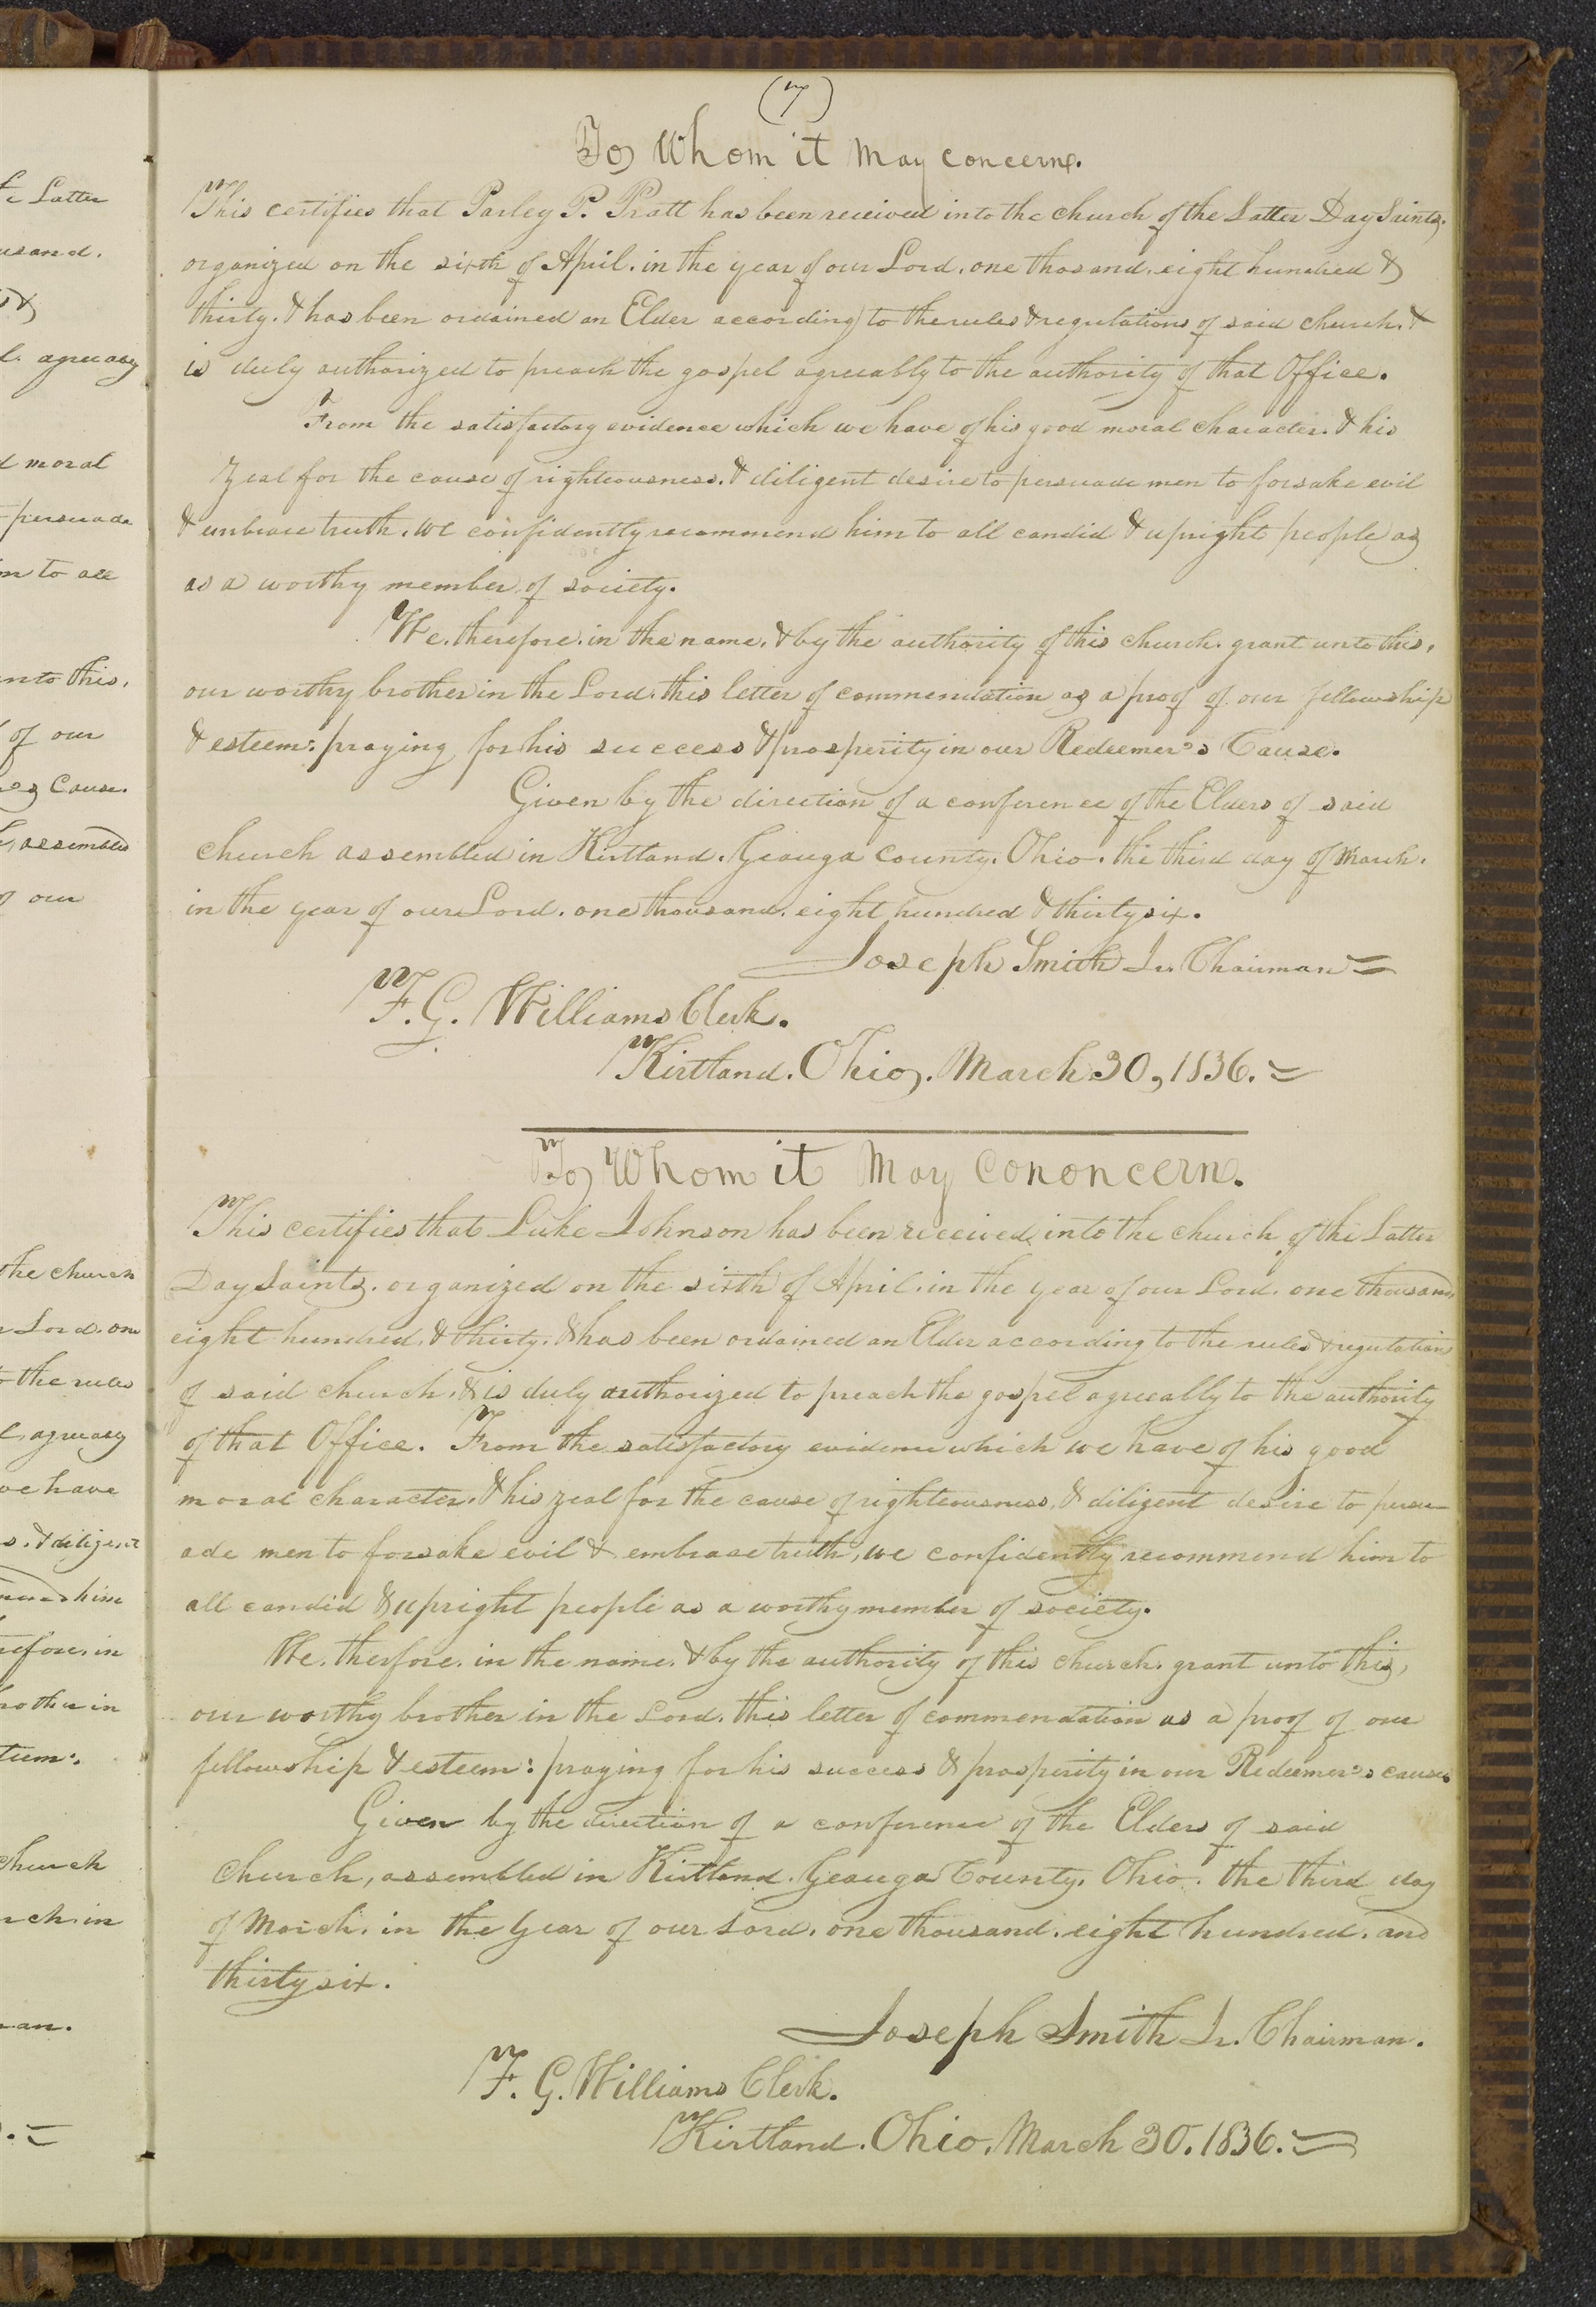 (7)
To Whom it May concern.
This certifies that Parley P. Pratt has been received into the church of the Latter Day Saints.
organized on the sixth of April. in the year of our Lord. one thosand. eight hundred &
thirty. & has been ordained an Elder according to the rules & regulations of said church. &
is duly authorized to preach the gospel agreeably to the authority of that Office.
From the satisfactory evidence which we have of his good moral character. & his
zeal for the cause of righteousness. & diligent desire to persuade men to forsake evil
& embrace truth. we confidently recommend him to all candid & upright people as
as a worthy member of society.
We. therefore. in the name. & by the authority of this church. grant unto this.
our worthy brother in the Lord. this letter of commendation as a proof of our fellowship
& esteem: praying for his success & prosperity in our Redeemer's Cause.
Given by the direction of a conference of the Elders of said
church assembled in Kirtland. Geauga county. Ohio. the third day of March.
in the year of our Lord. one thousand. eight hundred & thirty six.
Joseph Smith Jr. Chairman
F. G. Williams Clerk.
Kirtland. Ohio. March 30, 1836.
To Whom it May Cononcern.
This certifies that Luke Johnson has been received into the church of the Latter
Day Saints. organized on the sixth of April. in the year of our Lord. one thousand
eight hundred. & thirty. & has been ordained an Elder according to the rules & regulations
of said church. & is duly authorized to preach the gospel agreeably to the authority
of that Office. From the satisfactory evidence which we have of his good
moral character. & his zeal for the cause of righteousness. & diligent desire to persu-
ade men to forsake evil & embrace truth, we confidently recommend him to
all candid & upright people as a worthy member of society.
We. therefore. in the name. & by the authority of this church. grant unto this,
our worthy brother in the Lord. this letter of commendation as a proof of our
fellowship & esteem: praying for his success & prosperity in our Redeemer's cause.
Given by the direction of a conference of the Elders of said
church, assembled in Kirtland. Geauga County. Ohio. the third day
of March. in the year of our Lord. one thousand. eight hundred. and
thirty six.
Joseph Smith Jr. Chairman.
F. G. Williams Clerk.
Kirtland. Ohio. March 30. 1836.